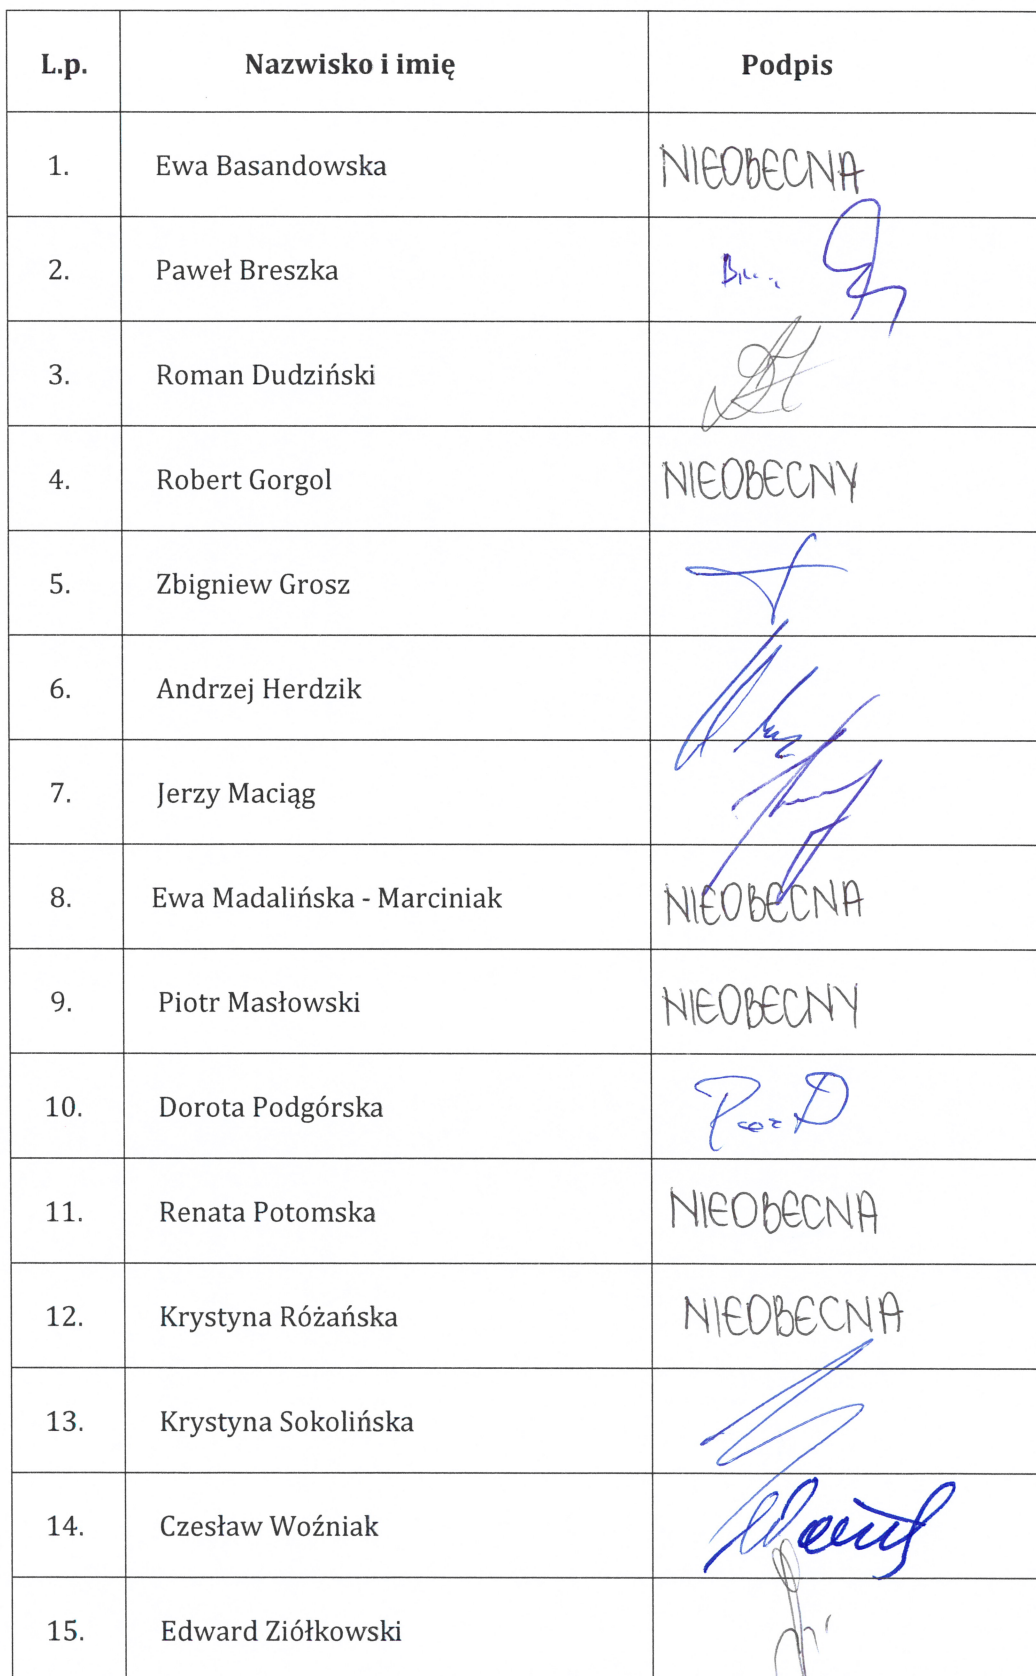 L.p. Nazwisko i imię Podpis
1. Ewa Basandowska NIEOBECNA
2. Paweł Breszka
3. Roman Dudziński
4. Robert Gorgol NIEOBECNY
5. Zbigniew Grosz
6. Andrzej Herdzik
7. Jerzy Maciąg
8. Ewa Madalińska - Marciniak NIEOBECNA
9. Piotr Masłowski NIEOBECNY
10. Dorota Podgórska
11. Renata Potomska NIEOBECNA
12. Krystyna Różańska NIEOBECNA
13. Krystyna Sokolińska
14. Czesław Woźniak
15. Edward Ziółkowski